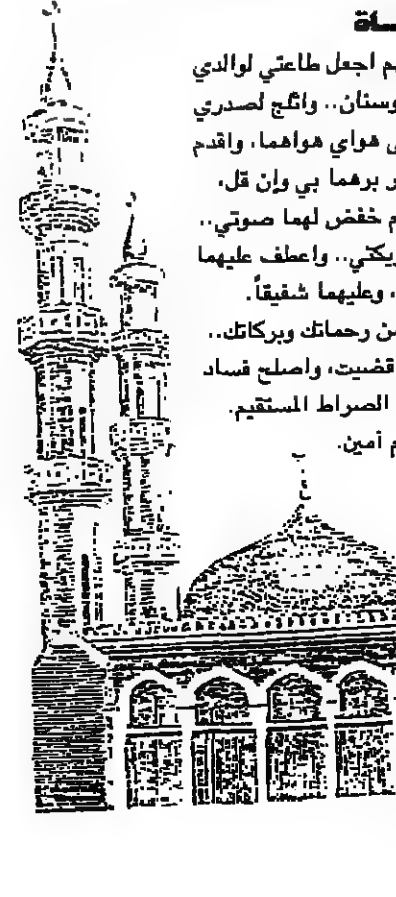 ـاة
ـم اجعل طاعتي لوالدي
وسنان.. واثلج لصدري
ـى هواي هواهما، واقدم
ـر برهما بي وإن قل،
ـم خفض لهما صوتي..
ـريكتي.. واعطف عليهما
، وعليهما شفيقاً.
ـن رحماتك وبركاتك..
قضيت، واصلح فساد
الصراط المستقيم.
ـم آمين.